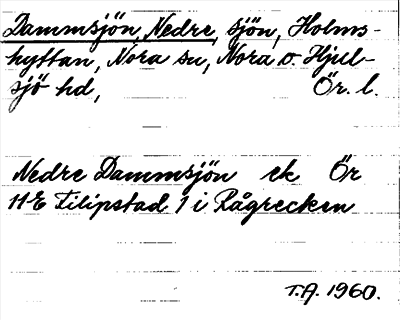 Dammsjön, Nedre, sjön, Holms-
hyttan, Nora sn, Nora o. Hjul-
sjö hd, Ör. l.
Nedre Dammsjön ek Ör
11E Filipstad 1 i Rågrecken
T.A. 1960.